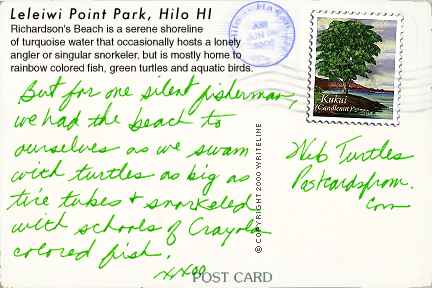 Leleiwi Point Park, Hilo HI
Richardson's Beach is a serene shoreline
of turquoise water that occasionally hosts a lonely
angler or singular snorkeler, but is mostly home to
rainbow colored fish, green turtles and aquatic birds.
But for one silent fisherman,
we had the beach to
ourselves as we swam
with turtles as big as
tire tubes + snorkeled
with schools of Crayola
colored fish.
XXOO
POST CARD
© COPYRIGHT 2000 WRITELINE
Kukui
(Candlenut)
Web Turtles
Postcardsfrom.
com